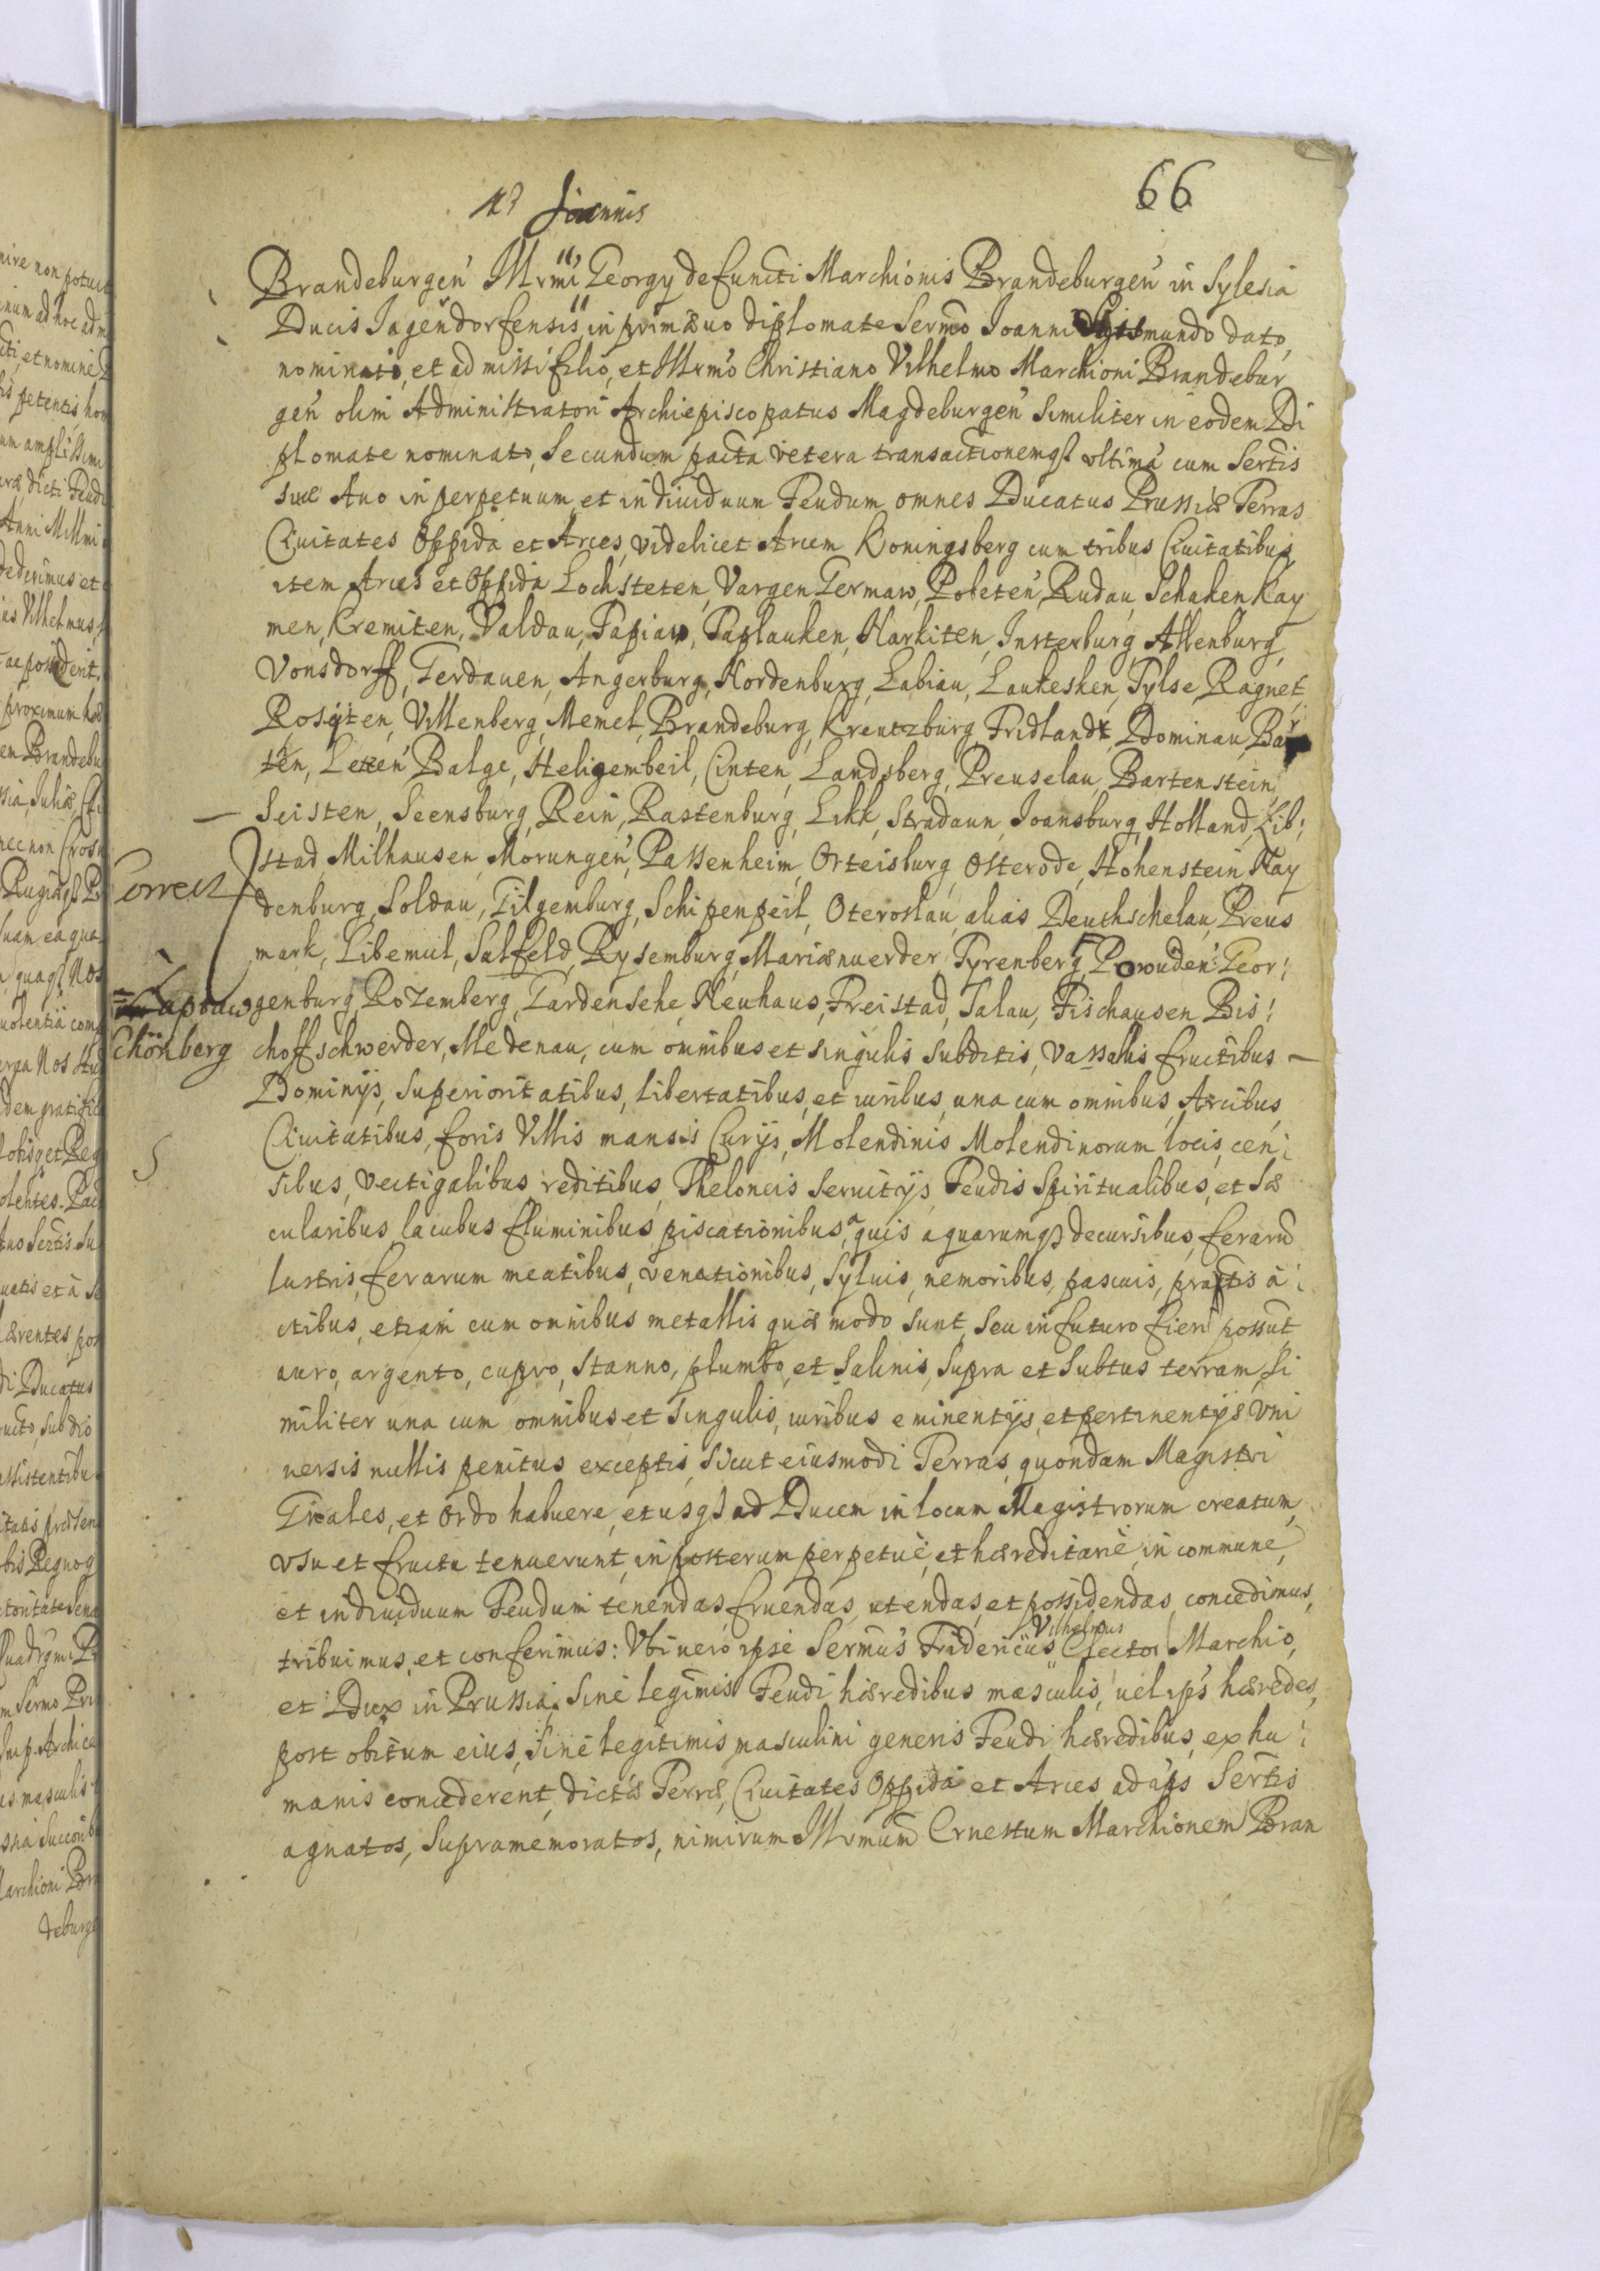 66
Joannis
Brandeburgen Illrmi Georgy defuncti Marchionis Brandeburgen in Sylesia
Ducis Jagendorfensis, in primæuo diplomate Sermo Joanni Sigismundo dato,
nominato, et admissi filio, et Illrmo Christiano Vilhelmo Marchioni Brandebur
gen olim Administratori Archiepiscopatus Magdeburgen similiter in eodem Di
plomate nominato, secundum pacta vetera transactionemq ultimā cum Sertis
suæ Auo in perpetuum et indiuiduum Feudum omnes Ducatus Prussiæ Terras
Ciuitates Oppida et Arces, videlicet Arcem Koningsberg cum tribus Ciuitatibus
item Arces et Oppida Lochsteten, Vargen Germaw, Pobeten, Rudau, Schaken Kay
men, Kremiten, Valdau, Tapiaw, Taplauken, Narkiten, Insterburg, Allenburg,
Vonsdorff, Gerdauen, Angerburg, Nordenburg, Labiau, Laukesken, Tylse, Ragnet,
Rosyten, Villenberg, Memel, Brandeburg, Kreutzburg, Fridlandt, Dominau, Bar
ten, Leten, Balge, Heligembeil, Cinten, Landsberg, Preuselau, Bartenstein,
Seisten, Seensburg, Rein, Rastenburg, Likk, Stradaun, Joansburg, Holland, Lib:
stad, Milhausen, Morungen, Passenheim, Orteisburg, Osterode, Hohenstein, Nay
Correct
denburg, Soldau, Gilgemburg, Schipenpeil, Oteroslau, alias Deuthschelau, Preus
mark, Libemul, Salfeld, Rysemburg, Mariænuerder, Tyrenberg, Powuden, Geor:
genburg, Rozemberg, Gardensehe, Neuhaus, Freistad, Salau, Fischausen, Bis:
Schönberg
choffschwerder, Medenau, cum omnibus et singulis subditis, vassallis fructibus
Dominijs, superioritatibus, libertatibus, et iuribus, una cum omnibus, Arcibus,
Ciuitatibus, foris Villis mansis Curijs, Molendinis Molendinorum locis, cen:
sibus, vectigalibus reditibus, Theloneis seruitijs, Feudis Spiritualibus, et Sæ
cularibus lacubus fluminibus, piscationibus, aquis aquarumq decursibus, ferarū
lustris, ferarum meatibus, venationibus, syluis, nemoribus, pascuis, pratis a:
ctibus, etiam cum omnibus metallis quæ modo sunt, seu in futuro fieri possūt
auro, argento, cupro, stanno, plumbo, et salinis, supra et subtus terram, si
militer una cum omnibus et singulis, iuribus eminentijs, et pertinentijs uni
uersis nullis penitus exceptis, sicut eiusmodi Terras, quondam Magistri
Grales, et Ordo habuere, et usq ad Ducem in locum Magistrorum creatum,
usu et fructu tenuerunt, in posterum perpetuè, et hæreditariè in commune,
et indiuiduum Feudum tenendas, fruendas, utendas, et possidendas, concedimus,
tribuimus, et conferimus: Ubi uero ipse Sermus Fridericus Vilhelmus Elector Marchio,
et Dux in Prussia, sine legimis Feudi hæredibus masculis, uel ips hæredes,
post obitum eius, sine legitimis masculini generis Feudi hæredibus, ex hu:
manis concederent, dictæ Terræ, Ciuitates Oppida et Arces ad ips Sertis
agnatos, supramemoratos, nimirum Illrmum Ernestum Marchionem Bran